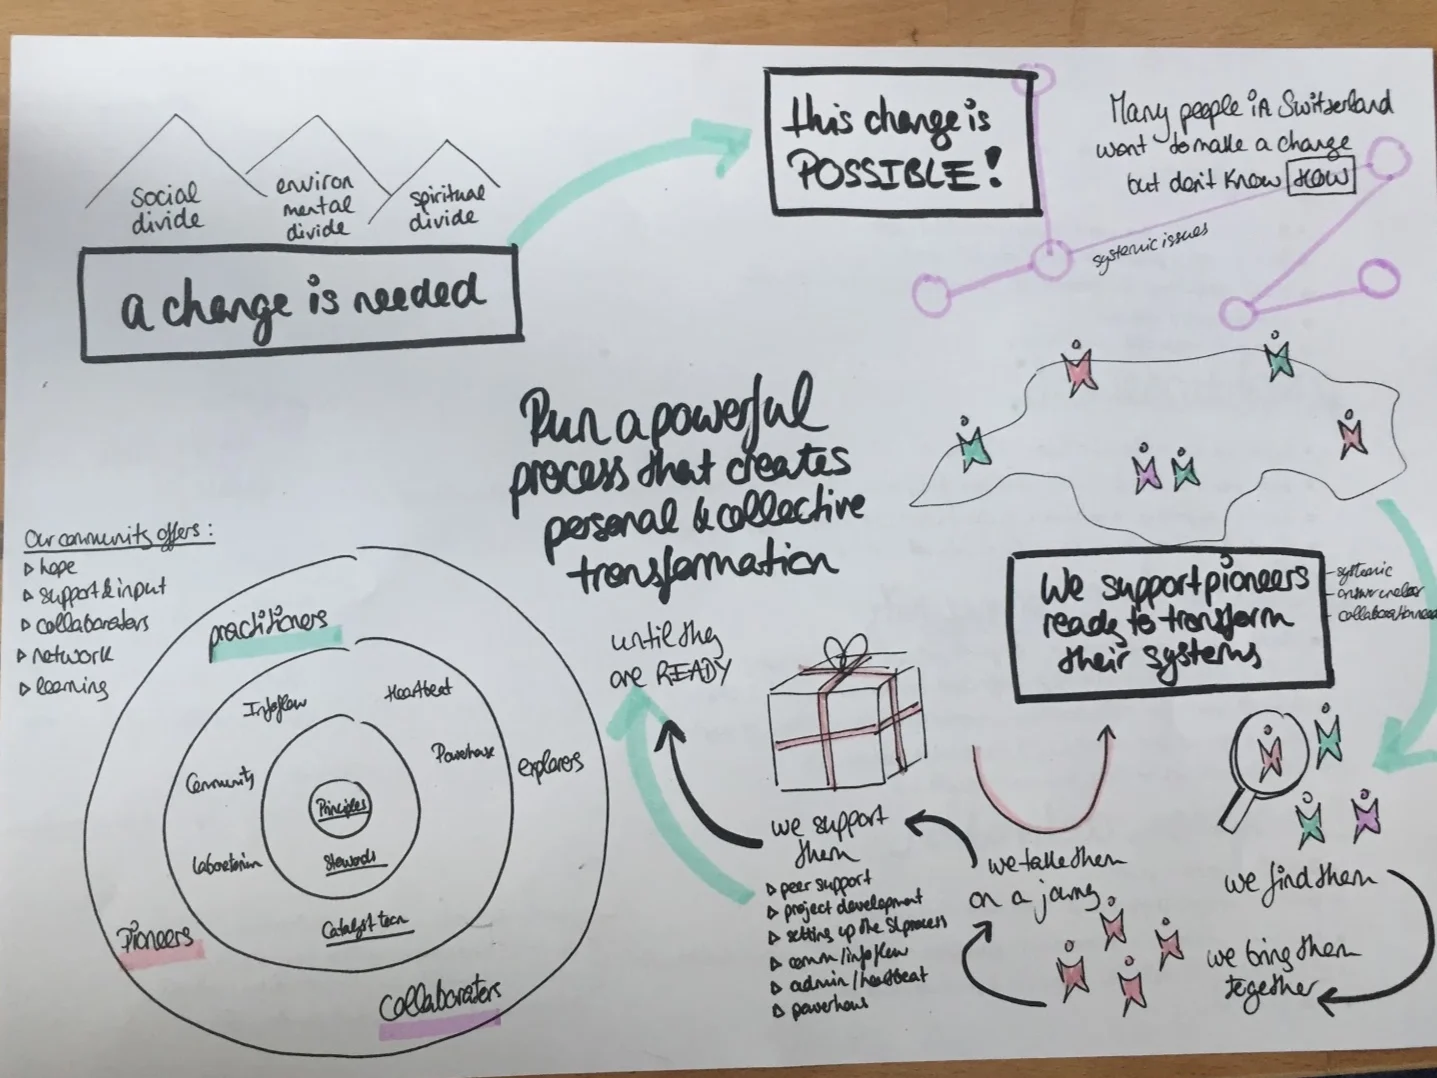 social
divide
environ
mental
divide
spiritual
divide
a change is needed
this change is
POSSIBLE!
Many people in Switzerland
want to make a change
but don't know HOW
systemic issues
Run a powerful
process that creates
personal & collective
transformation
until they
are READY
We support pioneers
ready to transform
their systems
- systemic
- collaborationread
we find them
we bring them
together
we take them
on a journy
we support
them
▷ peer support
▷ project development
▷ setting up the SI process
▷ comm/infoflow
▷ admin/heartbeat
▷ powerhous
Our community offers:
▷ hope
▷ support & input
▷ collaboraters
▷ network
▷ learning
practitioners
Infoflow
Heartbeat
Community
Powerhouse
explorers
Principles
Laboratorium
Stewards
Catalyst team
Pioneers
collaboraters